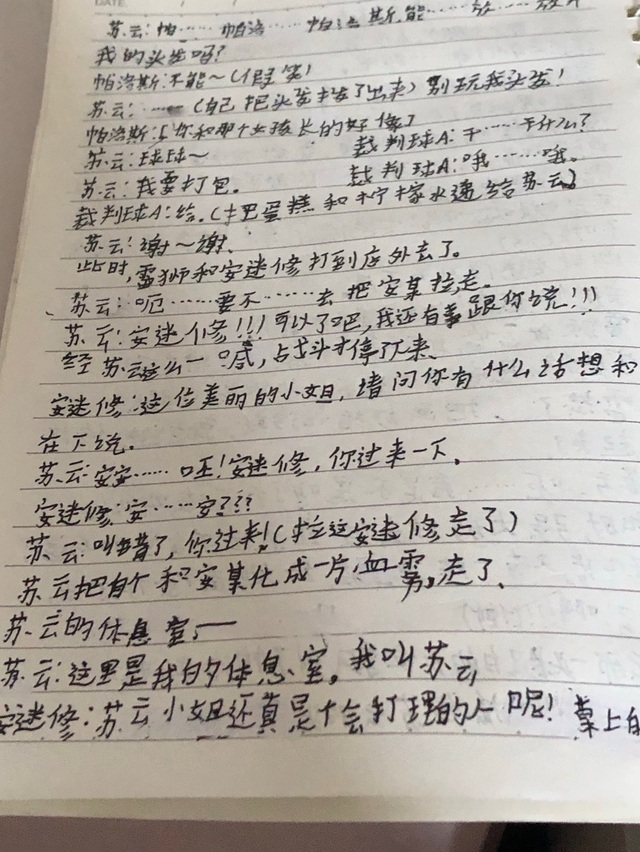 DATE
苏云:帕……帕洛……帕洛斯,能……放……放开
我的头发吗?
帕洛斯:不能~(假笑)
苏云:……(自己把头发拔了出来)别玩我头发!
帕洛斯:你和那个女孩长的好像
苏云:球球~ 裁判球A:干……干什么?
苏云:我要打包。 裁判球A:哦……哦。
裁判球A:给。(把蛋糕和柠檬水递给苏云)
苏云:谢~谢、
此时,雷狮和安迷修打到店外去了。
苏云:呃……要不……去把安某拉走。
苏云:安迷修!!!可以了吧,我还有事跟你说!!!
经苏云这么一喊,战斗才停了下来、
安迷修:这位美丽的小姐,请问你有什么话想和
在下说.
苏云:安安……呸!安迷修,你过来一下。
安迷修:安……安???
苏云:叫错了,你过来!(拉这安迷修走了)
苏云把自个和安某化成一片血雾,走了、
苏云的休息室:——
苏云:这里是我的休息室,我叫苏云
安迷修:苏云小姐还真是个会打理的人呢!桌上的